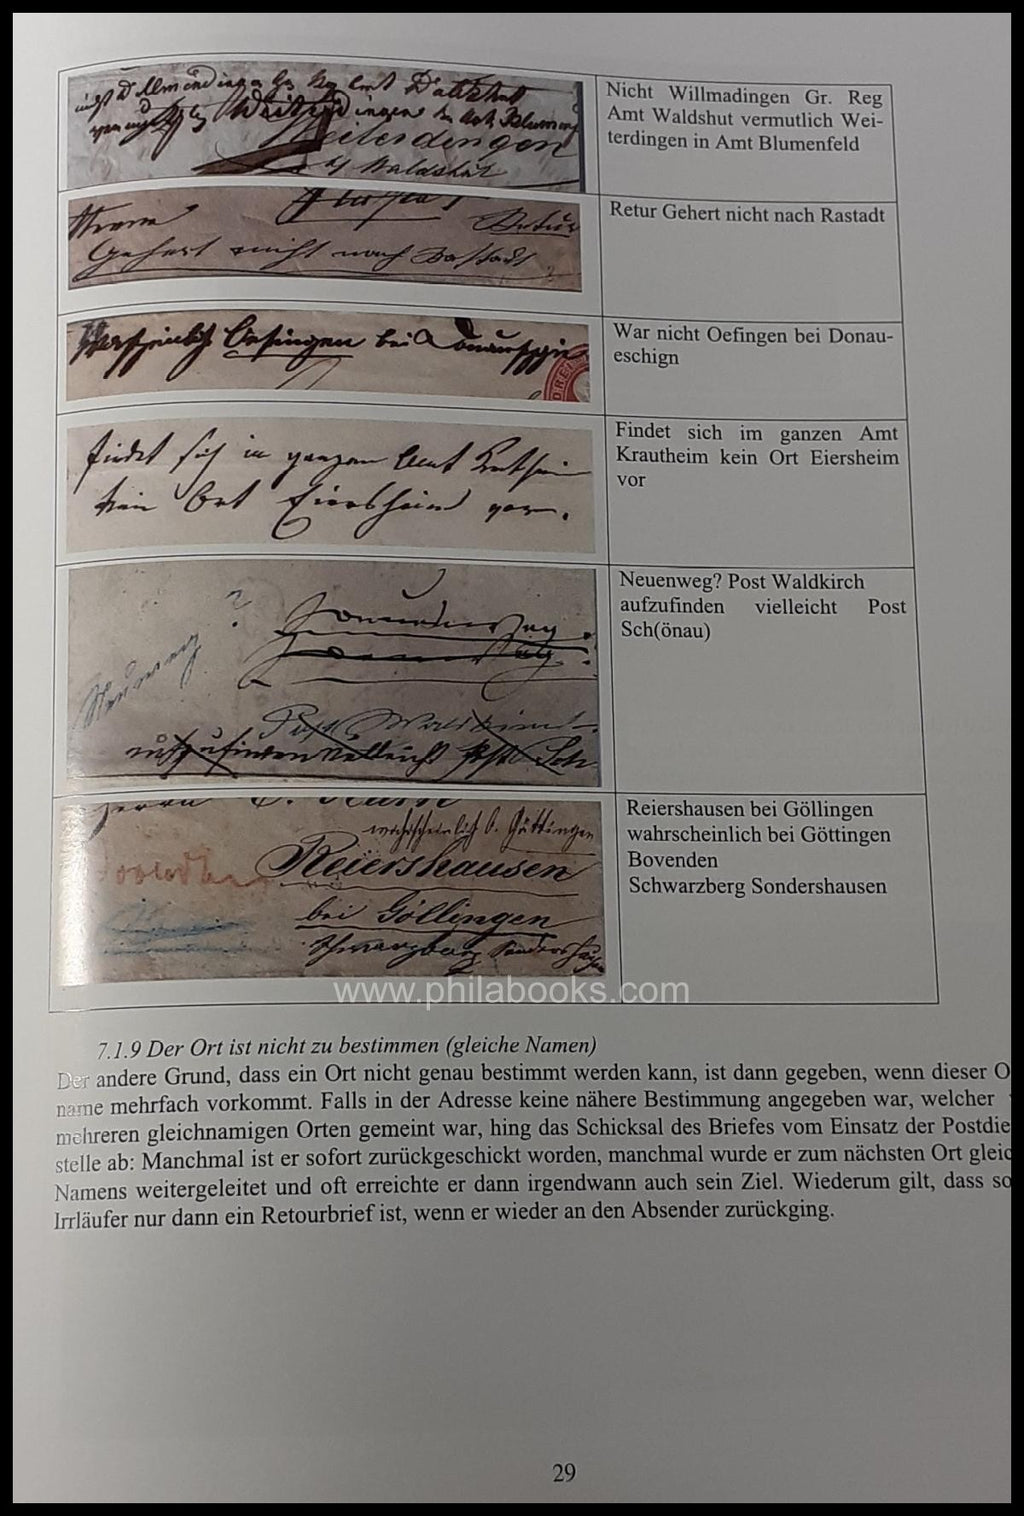 Nicht Willmadingen Gr. Reg
Amt Waldshut vermutlich Wei-
terdingen in Amt Blumenfeld
Weiterdingen
Waldshut
Retur Gehert nicht nach Rastadt
Herrn
Retur
Gehert nicht nach Rastadt
War nicht Oefingen bei Donau-
eschign
Oefingen bei
DREI
Findet sich im ganzen Amt
Krautheim kein Ort Eiersheim
vor
findet sich in ganzen Amt Krautheim
kein Ort Eiersheim vor.
Neuenweg? Post Waldkirch
aufzufinden vielleicht Post
Sch(önau)
?
Neuenweg
Post Waldkirch
aufzufinden vielleicht Post Sch
Reiershausen bei Göllingen
wahrscheinlich bei Göttingen
Bovenden
Schwarzberg Sondershausen
Herrn
wahrscheinlich b. Göttingen
Reiershausen
bei Göllingen
www.philabooks.com
7.1.9 Der Ort ist nicht zu bestimmen (gleiche Namen)
Der andere Grund, dass ein Ort nicht genau bestimmt werden kann, ist dann gegeben, wenn dieser O
name mehrfach vorkommt. Falls in der Adresse keine nähere Bestimmung angegeben war, welcher
mehreren gleichnamigen Orten gemeint war, hing das Schicksal des Briefes vom Einsatz der Postdie
stelle ab: Manchmal ist er sofort zurückgeschickt worden, manchmal wurde er zum nächsten Ort gleic
Namens weitergeleitet und oft erreichte er dann irgendwann auch sein Ziel. Wiederum gilt, dass so
Irrläufer nur dann ein Retourbrief ist, wenn er wieder an den Absender zurückging.
29